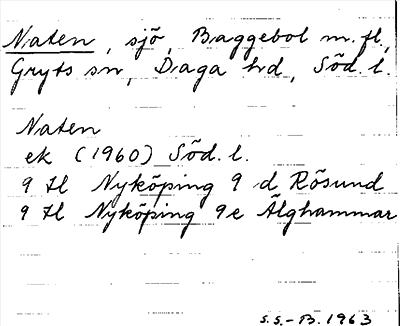 Naten, sjö, Baggebol m.fl.,
Gryts sn, Daga hd, Söd. l.
Naten
ek (1960) Söd. l.
9 H Nyköping 9 d Rösund
9 H Nyköping 9e Älghammar
S.S.-B. 1963